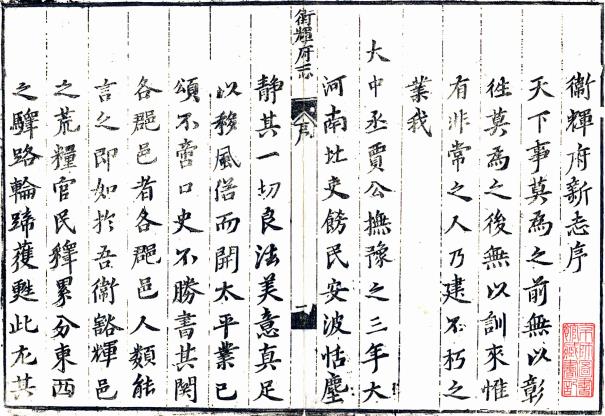 衛輝府新志序
天下事莫爲之前無以彰
徃莫爲之後無以訓來惟
有非常之人乃建不朽之
業我
大中丞賈公撫豫之三年大
河南北吏餝民安波恬塵
衛輝府志
序
一
靜其一切良法美意真足
以移風俗而開太平業已
頌不啻口史不勝書其関
各郡邑者各郡邑人類能
言之即如於吾衛豁輝邑
之荒糧官民釋累分東西
之驛路輪蹄獲甦此尤其